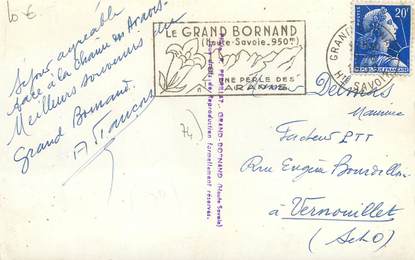 10 €
Séjour agréable
face à la Chaîne des Aravis
Meilleurs souvenirs du
Grand Bornand.
A François
LE GRAND BORNAND
(Haute-Savoie, 950m)
UNE PERLE DES
ARAVIS
POSTES
20F
GRAND
Hte SAVOIE
GRAND-BORNAND (Haute Savoie)
Reproduction formellement réservés.
74)
Delmas
Facteur PTT
Rue Eugène Bourdillon
à Vernouillet
(S et O)